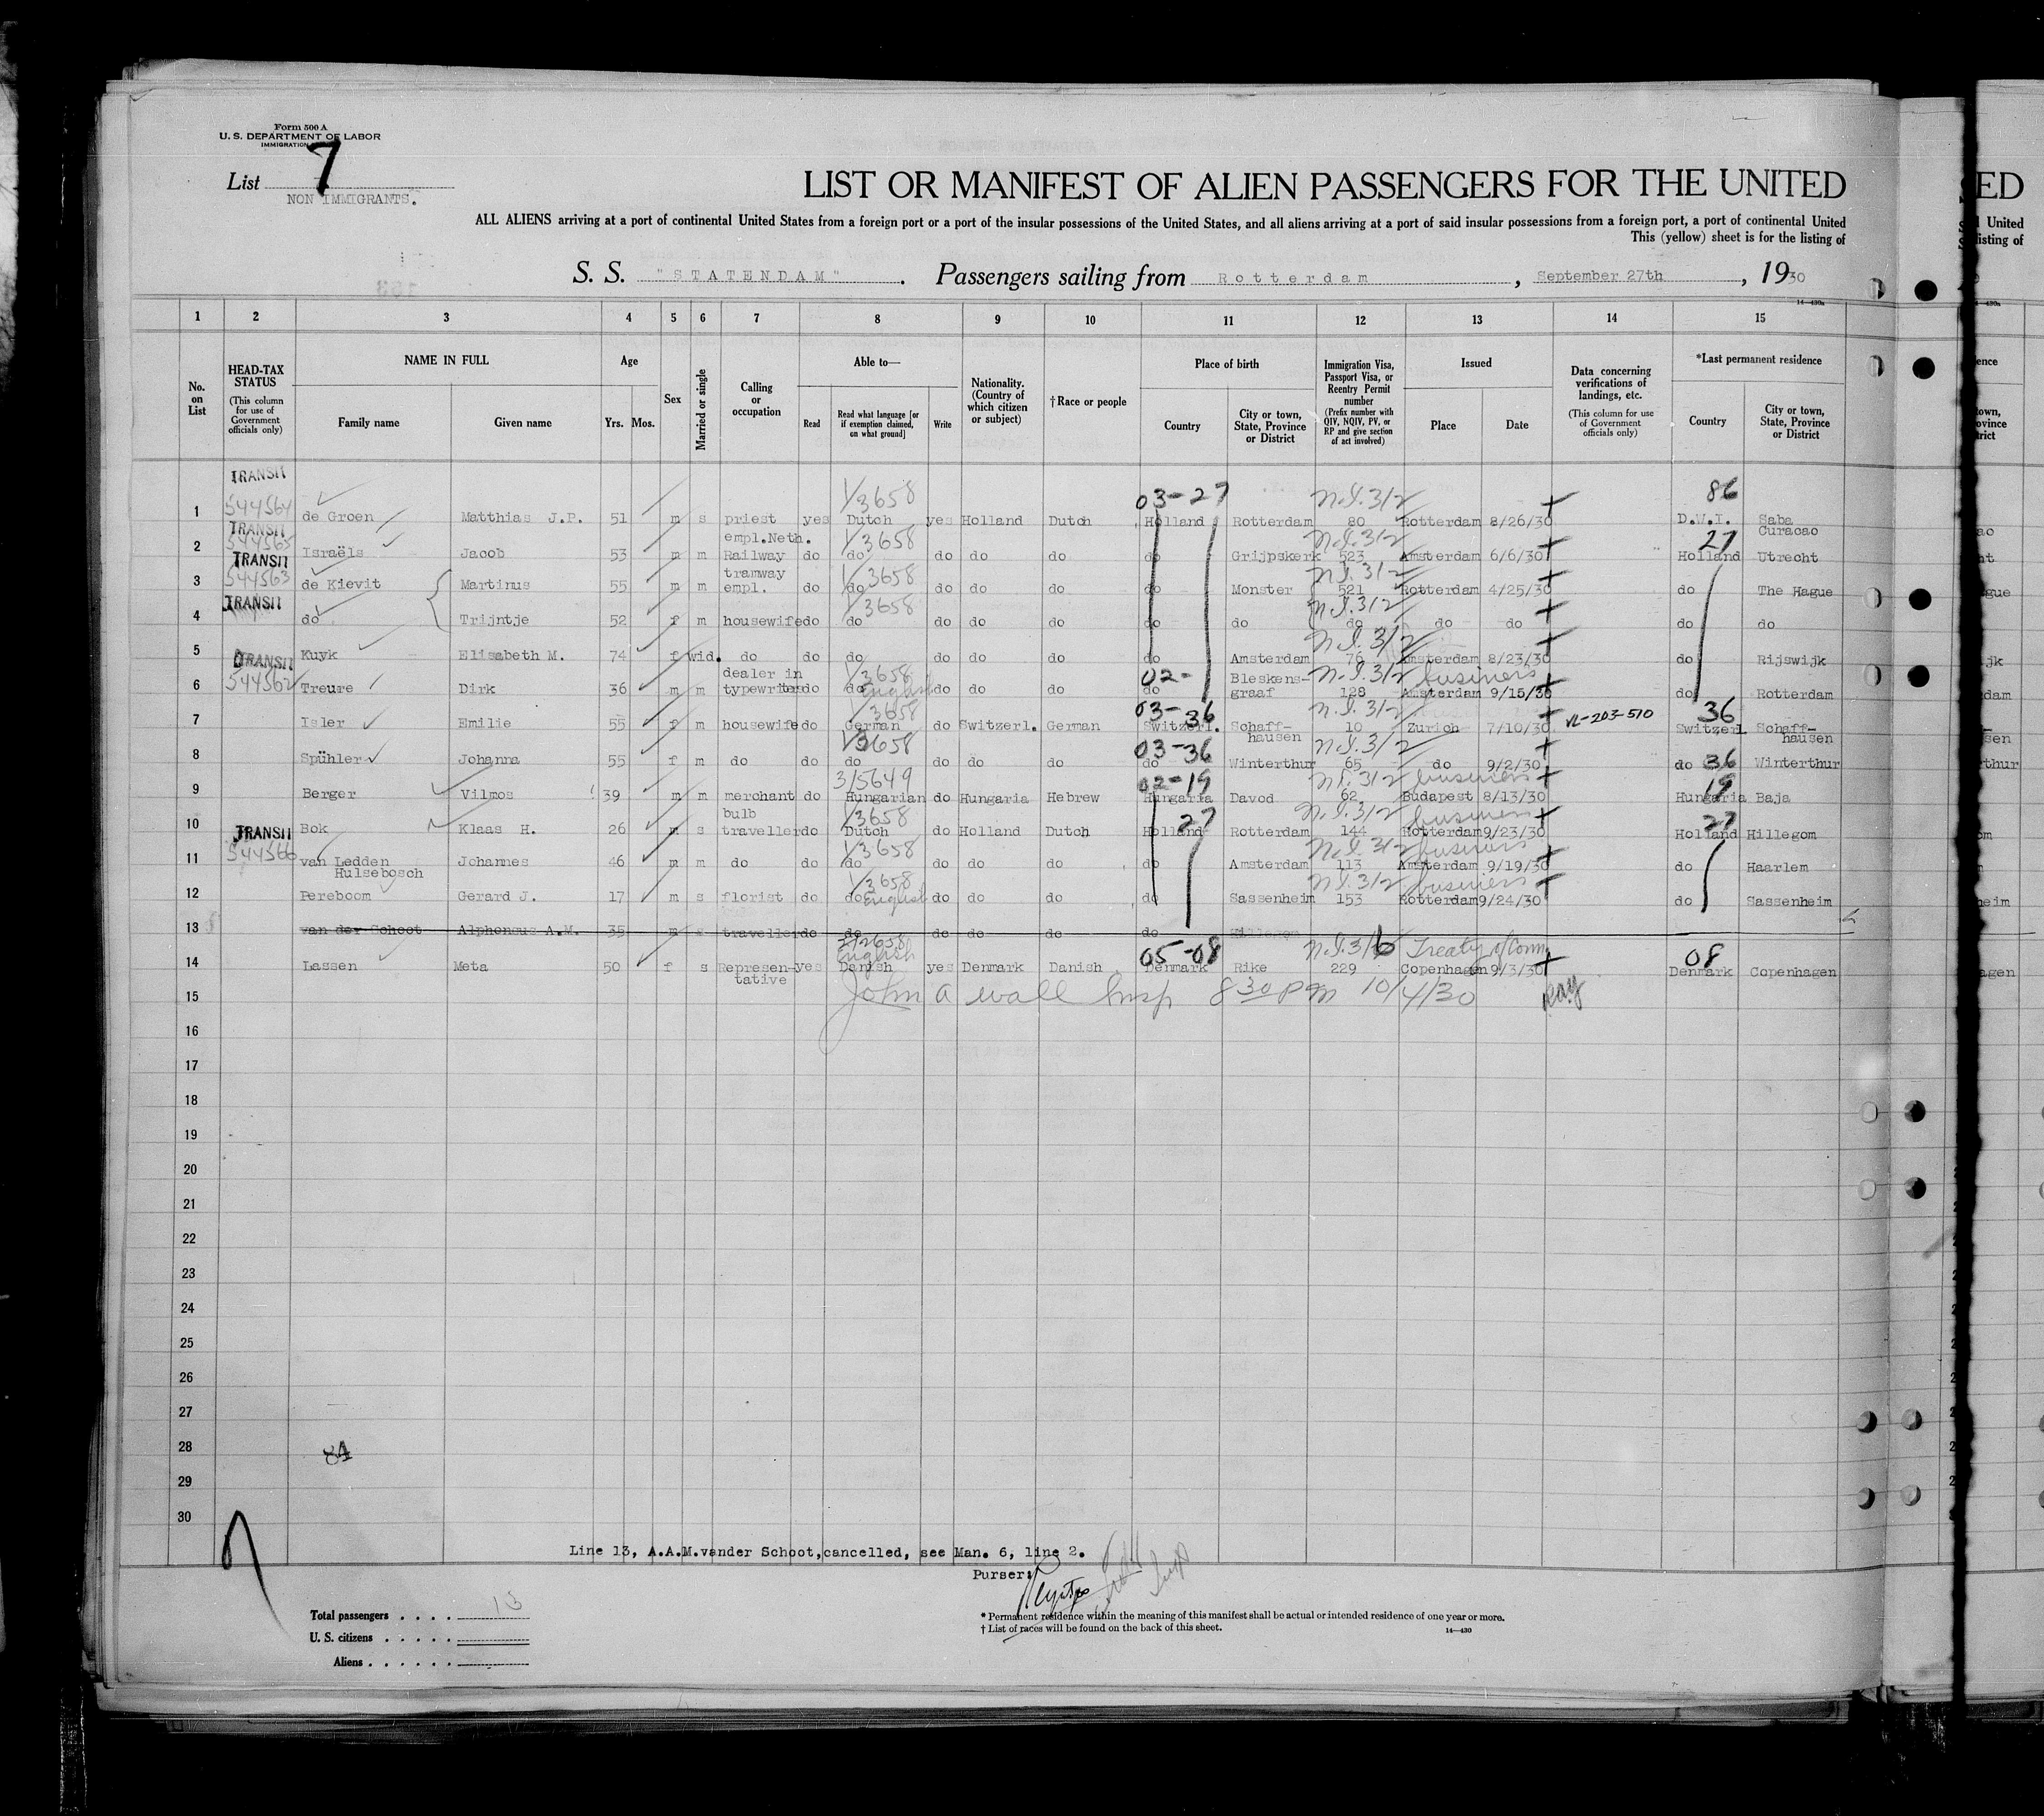 Form 500 A
U. S. DEPARTMENT OF LABOR
IMMIGRATION
List 7
NON IMMIGRANTS.
LIST OR MANIFEST OF ALIEN PASSENGERS FOR THE UNITED
ALL ALIENS arriving at a port of continental United States from a foreign port or a port of the insular possessions of the United States, and all aliens arriving at a port of said insular possessions from a foreign port, a port of continental United
This (yellow) sheet is for the listing of
S. S. "STATENDAM". Passengers sailing from Rotterdam, September 27th, 1930
14—430a
1 2 3 4 5 6 7 8 9 10 11 12 13 14 15
No. on List
HEAD-TAX STATUS (This column for use of Government officials only)
NAME IN FULL Family name Given name
Age Yrs. Mos.
Sex
Married or single
Calling or occupation
Able to— Read Read what language [or if exemption claimed, on what ground] Write
Nationality. (Country of which citizen or subject)
†Race or people
Place of birth Country City or town, State, Province or District
Immigration Visa, Passport Visa, or Reentry Permit number (Prefix number with QIV, NQIV, PV, or RP and give section of act involved)
Issued Place Date
Data concerning verifications of landings, etc. (This column for use of Government officials only)
*Last permanent residence Country City or town, State, Province or District
TRANSIT 1/3658 03-27 N.I.312 86
1 544564 de Groen Matthias J.P. 51 m s priest yes Dutch yes Holland Dutch Holland Rotterdam 80 Rotterdam 8/26/30 D.W.I. Saba Curacao
TRANSIT 544565 empl.Neth. 1/3658 N.I.312 27
2 Israëls Jacob 53 m m Railway do do do do do do Grijpskerk 523 Amsterdam 6/6/30 Holland Utrecht
TRANSIT 544563 tramway 1/3658 N.I.312
3 de Kievit Martinus 55 m m empl. do do do do do do Monster 521 Rotterdam 4/25/30 do The Hague
TRANSIT 1/3658 N.I.312
4 do Trijntje 52 f m housewife do do do do do do do do do do do do
N.I.312
5 Kuyk Elisabeth M. 74 f wid. do do do do do do do Amsterdam 76 Amsterdam 8/23/30 do Rijswijk
TRANSIT 544562 dealer in 1/3658 02- Bleskens- N.I.312 business
6 Treure Dirk 36 m m typewriters do do English do do do do graaf 128 Amsterdam 9/15/30 do Rotterdam
1/3658 03-36 N.I.312 VL-203-510 36
7 Isler Emilie 55 f m housewife do German do Switzerl. German Switzerl. Schaff-hausen 10 Zurich 7/10/30 Switzerl Schaff-hausen
1/3658 03-36 N.I.312 36
8 Spühler Johanna 55 f m do do do do do do do Winterthur 65 do 9/2/30 do Winterthur
3/5649 02-19 N.I.312 business 19
9 Berger Vilmos 39 m m merchant do Hungarian do Hungaria Hebrew Hungaria Davod 62 Budapest 8/13/30 Hungaria Baja
bulb 1/3658 27 N.I.312 business 27
10 Bok Klaas H. 26 m s traveller do Dutch do Holland Dutch Holland Rotterdam 144 Rotterdam 9/23/30 Holland Hillegom
TRANSIT 544566 1/3658 N.I.312 business
11 van Ledden Hulsebosch Johannes 46 m m do do do do do do do Amsterdam 113 Amsterdam 9/19/30 do Haarlem
1/3658 N.I.312 business
12 Pereboom Gerard J. 17 m s florist do do English do do do do Sassenheim 153 Rotterdam 9/24/30 do Sassenheim
13 van der Schoot Alphonsus A.M. 35 m s traveller do do do do do do Hillegom
2/2658 English 05-08 N.I.316 Treaty of Comm 08
14 Lassen Meta 50 f s Represen-tative yes Danish yes Denmark Danish Denmark Rike 229 Copenhagen 9/3/30 Denmark Copenhagen
15 John A Wall Insp 8 30 PM 10/4/30
16
17
18
19
20
21
22
23
24
25
26
27
28 84
29
30
Line 13, A.A.M.vander Schoot,cancelled, see Man. 6, line 2.
Purser:
Total passengers . . . . 13
U. S. citizens . . . . .
Aliens . . . . . .
* Permanent residence within the meaning of this manifest shall be actual or intended residence of one year or more.
† List of races will be found on the back of this sheet.
14—430